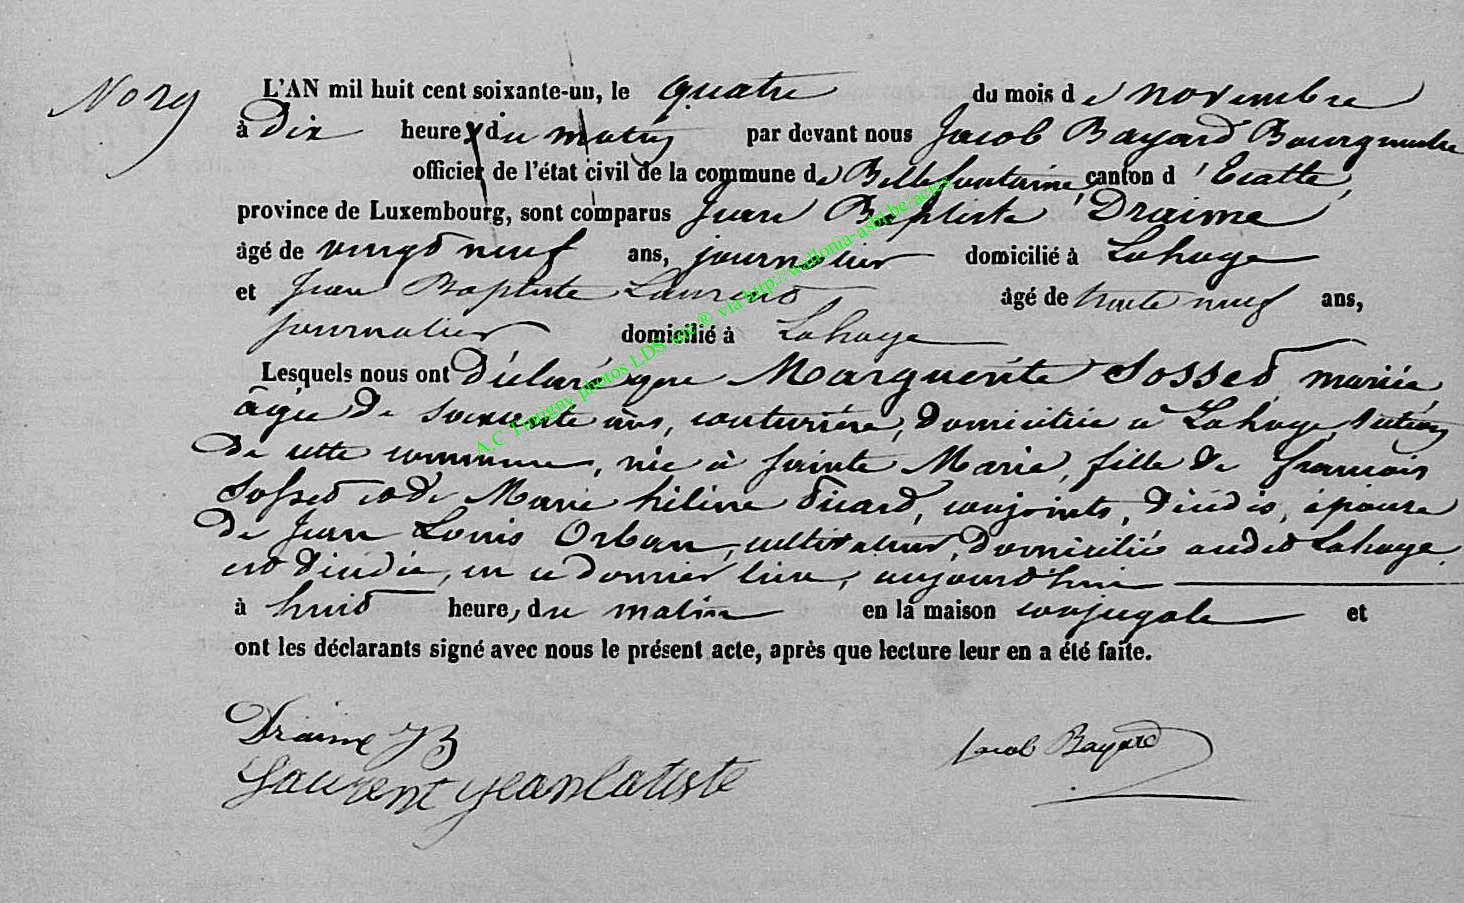 No 29
L'AN mil huit cent soixante-un, le quatre du mois de novembre
à Dix heure, du matin par devant nous Jacob Bayard Bourgmestre
officier de l'état civil de la commune de Bellefontaine, canton d'Etalle,
province de Luxembourg, sont comparus Jean Baptiste Draime,
âgé de vingt neuf ans, journalier domicilié à Lahage
et Jean Baptiste Laurent âgé de trente neuf ans,
journalier domicilié à Lahage
Lesquels nous ont Déclaré que Marguerite Tossed, mariée,
âgée De soixante ans, couturière, Domiciliée à Lahage, section
De cette commune, née à Sainte Marie, fille de françois
Tossed et de Marie hélène Picard, conjoints, Décédés, épouse
De Jean Louis Orban, cultivateur, Domicilié audit Lahage,
est Décédée, en ce Dernier lieu, aujourd'hui
à huit heure, du matin en la maison conjugale et
ont les déclarants signé avec nous le présent acte, après que lecture leur en a été faite.
Draime JB
Jacob Bayard
Laurent jean batiste
A.C Tintigny photos LDS via http://wallonia-asbl.be/actes